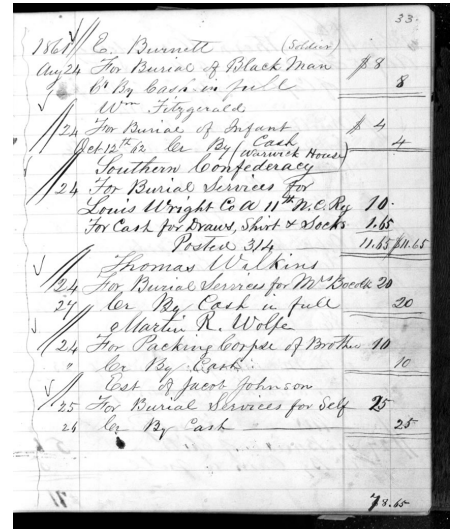 33.
1861 E. Burnett (Soldier)
Aug 24 For Burial of Black Man $8
Cr By Cash in full 8
Wm Fitzgerald
24 For Burial of Infant $ 4
Oct 12th 62 Cr By (Cash Warwick House) 4
Southern Confederacy
24 For Burial Services for
Louis Wright Co A 11th N.C. Rg 10.
For Cash for Draws, Shirt & Socks 1.65
Posted 314 11.65 $11.65
Thomas Wilkins
24 For Burial Services for Mrs Bocock 20
27 Cr By Cash in full 20
Martin R. Wolfe
24 For Packing Corpse of Brother 10
" Cr By Cash. 10
Est of Jacob Johnson
25 For Burial Services for Self 25
26 Cr By Cash 25
78.65